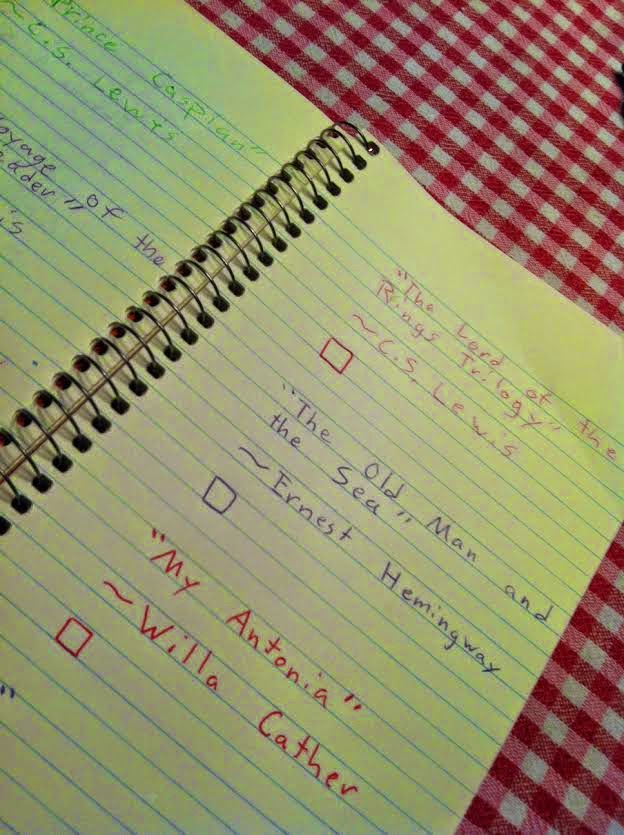 Prince Caspian"
~C.S. Lewis
oyage of the
eader"
is
"The Lord of the
Rings Trilogy"
~C.S. Lewis
"The Old Man and
the Sea"
~Ernest Hemingway
"My Antonia"
~Willa Cather